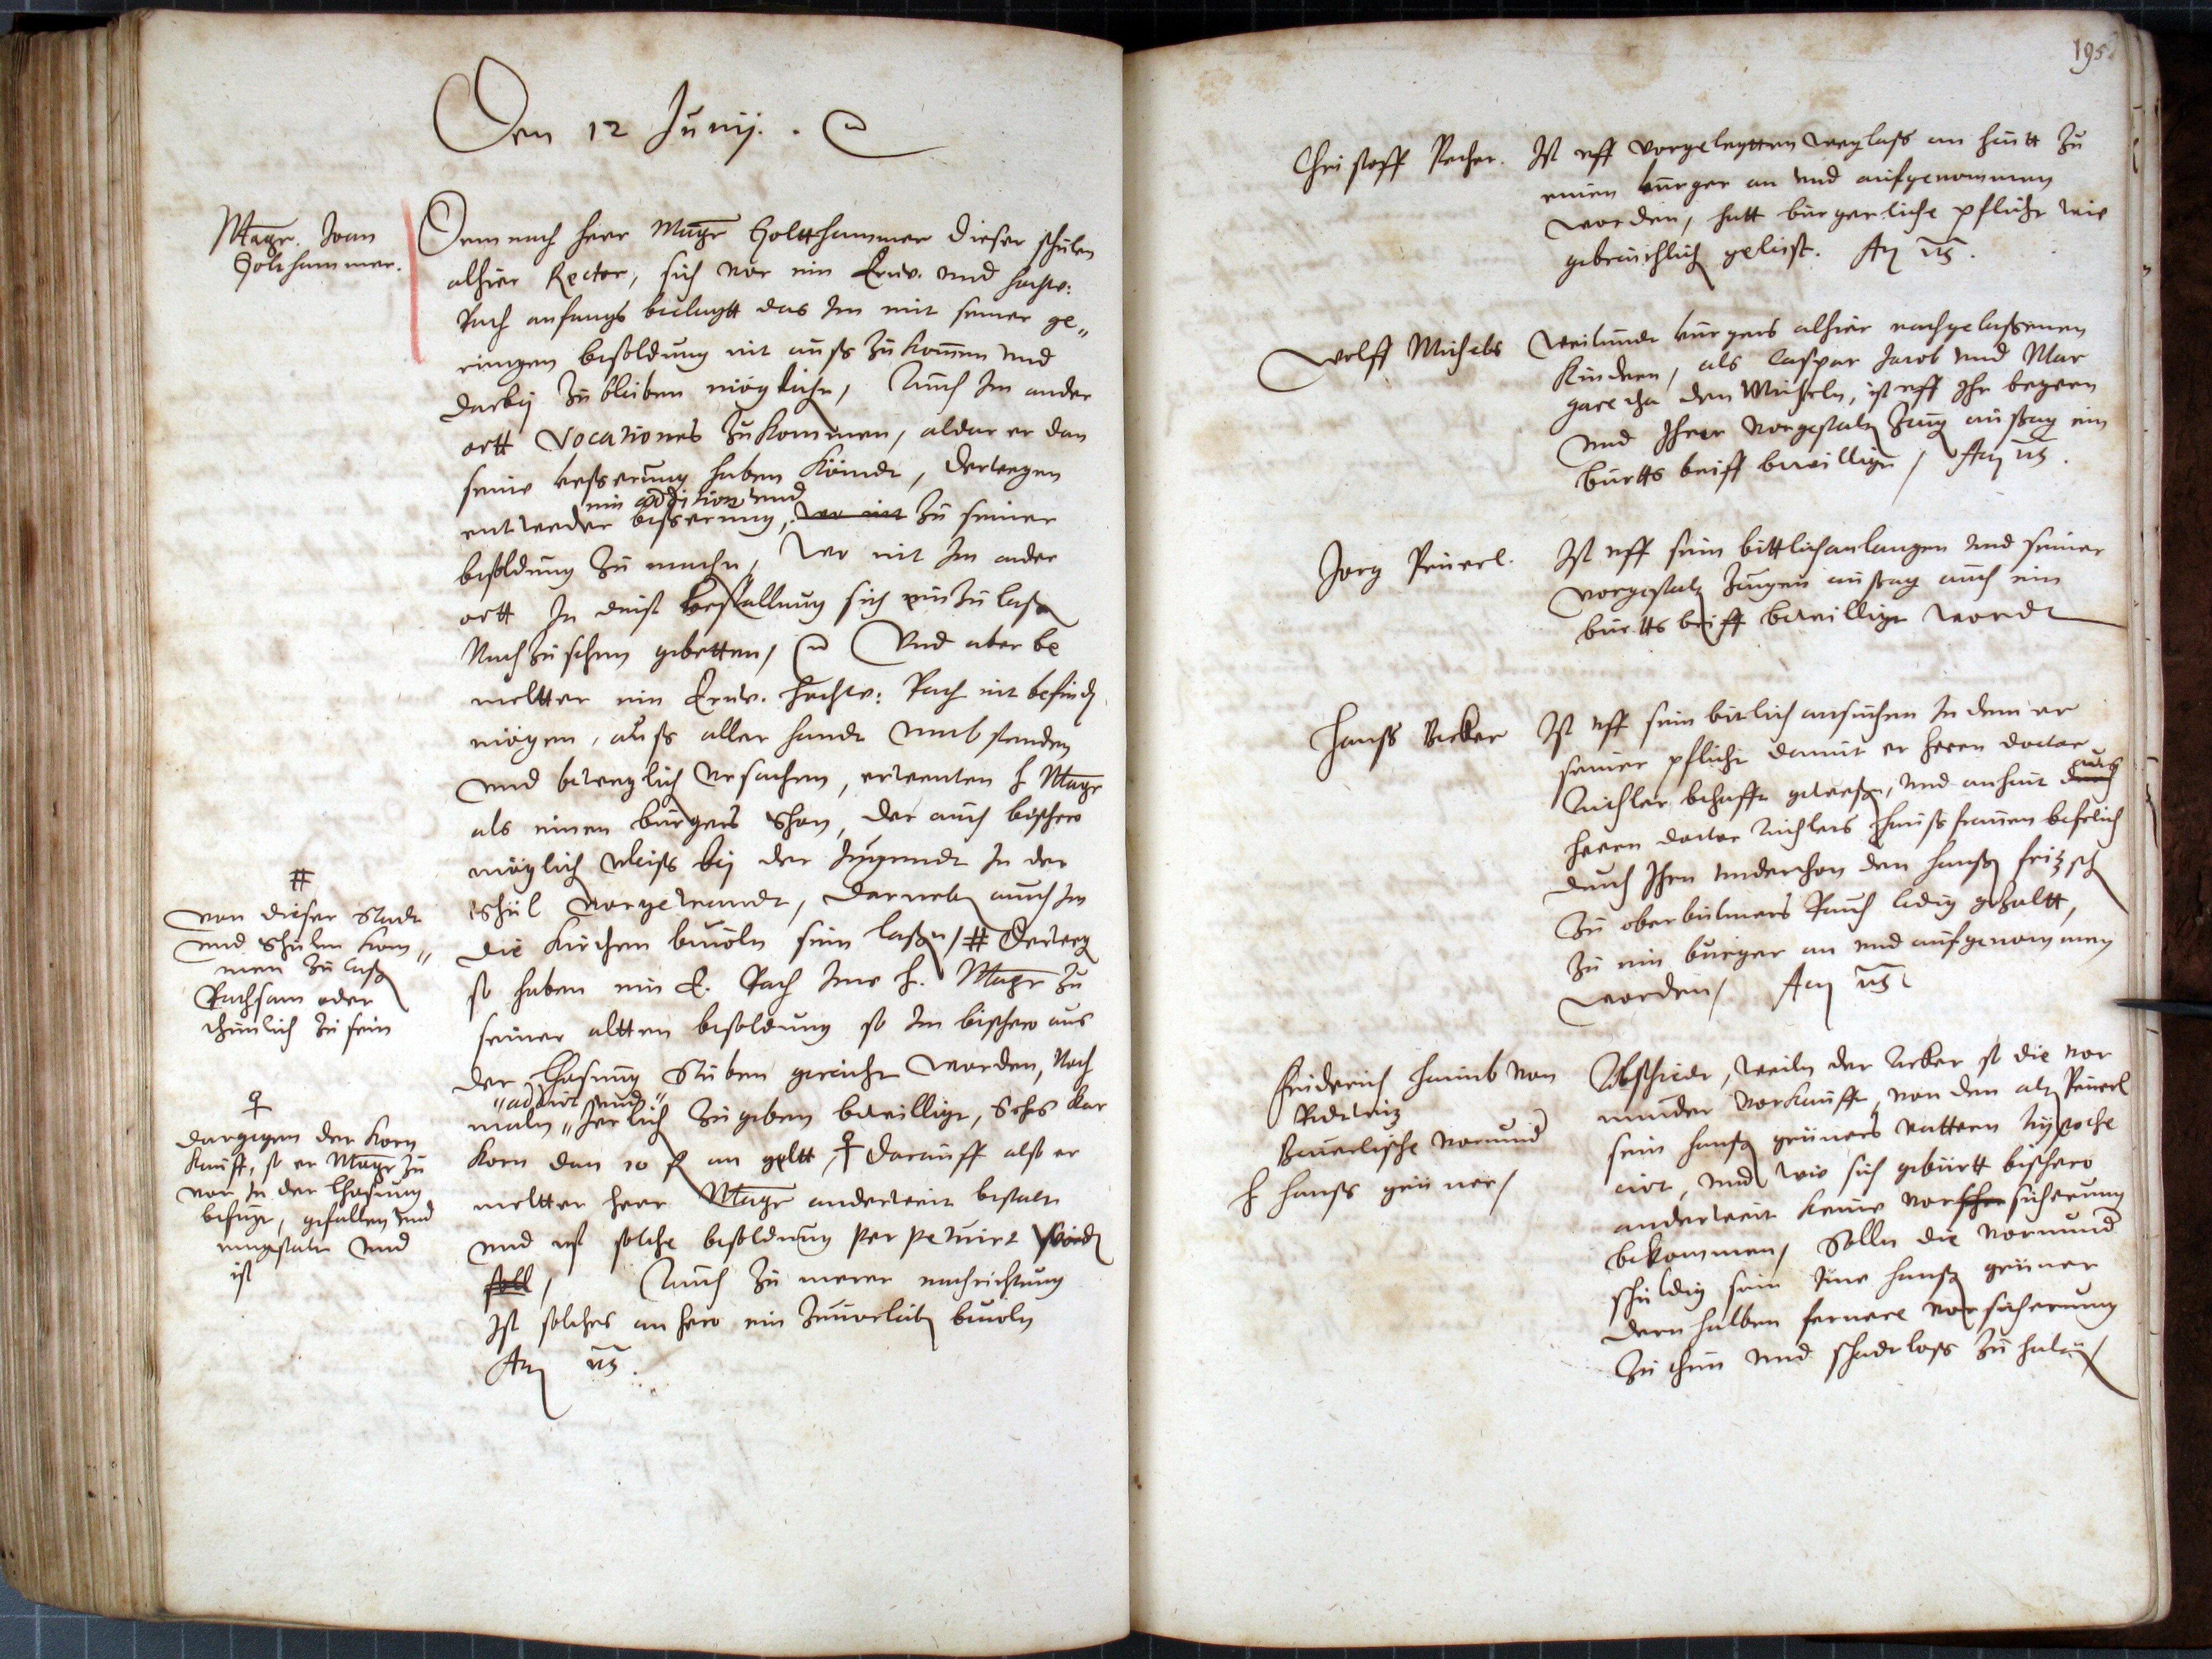 Den 12 Junij.
Magr. Joan
Holzhammer.
Demnach Herr Magr Holtzhammer dieser schulen
alhier Rector, sich vor ein Erw. und hochw:
Rath anfangs beclagtt das Im mit seiner ge„
ringen besoldung nit auß zu kommen und
darbey zu bleiben möglich, Auch Im ander
ortt Vocationes zukommen, aldar er dan
seine besserung haben köndt, derwegen
ein addition und
entweder besserung, wo nit zu seiner
besoldung zu machen, wo nit Im ander
ortt In dinst bestallung sich einzulaßen
Nachzusehen gebetten, Und aber be
meltter ein Erw. hochw: Rath nit befinden
mögen, auß aller handt umbstenden
und beweglich ursachen, ermelten H Magr
als einen burgers Shon, der auch bishero
möglich vleiß bey der Jugendt In der
Schul vorgewandt, darneben auch Im
die kirchen bevoln sein laßen, # derweg
so haben ein E. Rath Ime H. Magr zu
seiner altten besoldung so Im bishero aus
der Losung Stuben gereicht worden, Noch
„addirt und„
maln „Jerlich zu geben bewilligt, Sechs kar
korn dan 10 fl an geltt, ♀ darauff also er
meltter herr Magr anderweit bestalt
und uf solche besoldung perpetuirt worden
soll, Auch zu merer nachrichtung
Ist solches an hero ein zuvorleiben bevoln
Act ut s.
#
von dieser Stadt
und Schulen kom„
men zu laßen
Rathsam oder
thunlich zu sein
♀
dargegen der korn
kauff, so er Magr zu
vor In der Losung
befugt, gefallen und
eingestalt und
ist
195
Christoff Pecher. Ist uff vorgelegtten weglaß an heutt zu
einen burger an und aufgenommen
worden, hatt burgerliche pflicht wie
gebreuchlich geleist. Act ut s.
Wolff Michels Weilundt burgers alhier nachgelaßenen
kindern, als Caspar Jacob und Mar
garetha den Micheln, ist uff Ihr begern
und Ihrer vorgestalten Zeug aussag ein
burtts brieff bewilligt, Act ut s.
Jorg Peuerl. Ist uff sein bittlich anlangen und seiner
vorgestalten Zeugen aussag auch ein
burtts brieff bewilligt wordt
Hanß Becker Ist uff sein bitlich ansuchen In dem er
seiner pflicht damit er herrn doctor
behafft gewesen, und an heut durch uf
herrn doctor haußfrauen befelich
durch Ihren underthon den Hanßen fritzsch
zu Rauch ledig gezaltt,
zu ein burger an und aufgenommen
worden, Act ut s
Friderich Haüub von
Redtwitz
Beuerlische vormund
H Hanß grüner,
Abschiedt, weiln der Acker so die vor
münder verkaufft, von den alten Peuerl
sein Hanßen grüners vattern hypothe
cirt, und wie sich gebürtt bishero
anderweit keine vorsicherung
bekommen, Solln die vormund
schuldig sein Ime Hanßen grüner
dern halben fernere vorsicherung
zu thun und schadtloß zu halten,